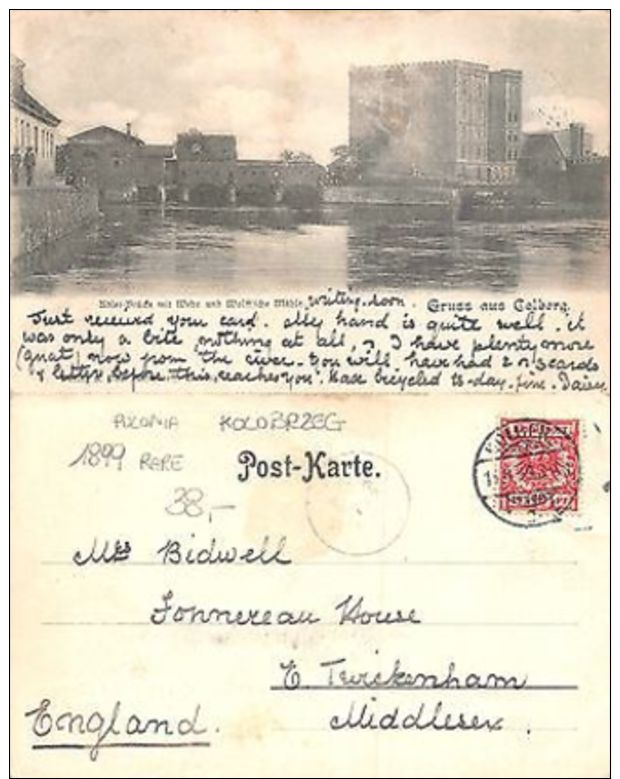 Gruss aus Colberg.
writing soon.
Just received your card. My hand is quite well. it
was only a bite, nothing at all, I have plenty more
(gnat) now from the river. You will have had 2 n's cards
& letter before this reaches you. Max bicycled to-day. fine. Daisy
POLONIA KOLOBRZEG
1899 RARE
Post-Karte.
38,-
Mrs Bidwell
Fonnereau House
E. Twickenham
Middlesex.
England.